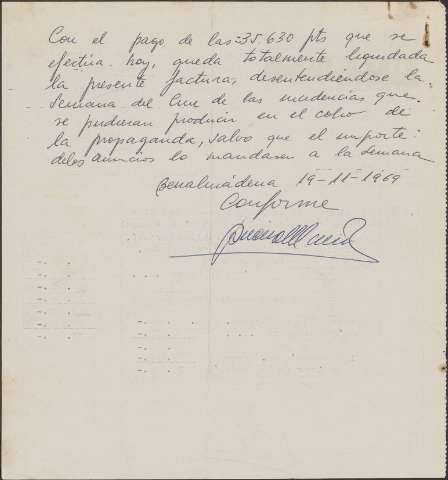 Con el pago de las 35,630 pts que se
efectua hoy, queda totalmente liquidada
la presente factura, desentendiéndose la
Semana del Cine de las incidencias que
se pudieran producir en el cobro de
la propaganda, salvo que el importe
de los anuncios lo mandasen a la Semana
Benalmádena 19-11-1969
Conforme